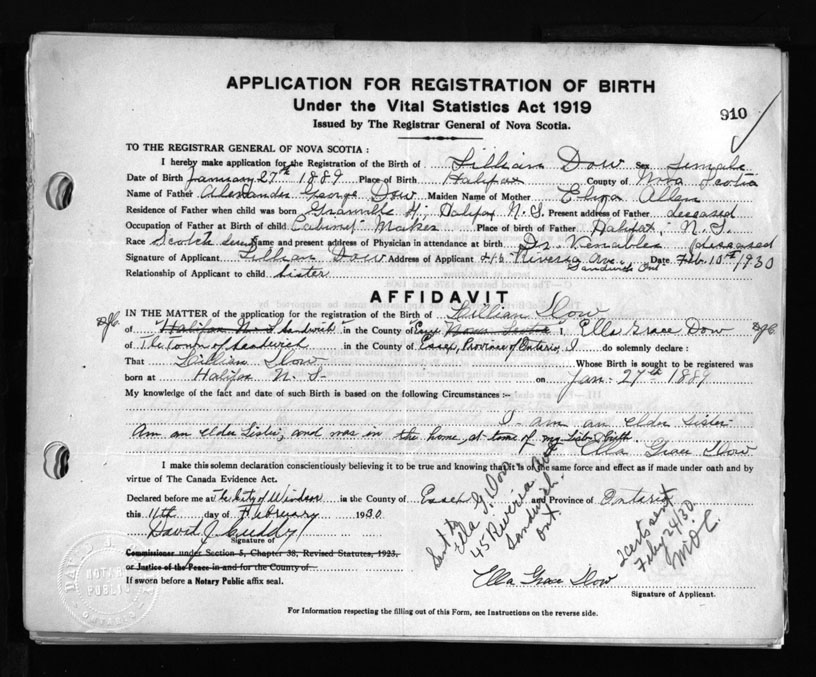 APPLICATION FOR REGISTRATION OF BIRTH
Under the Vital Statistics Act 1919
910
Issued by The Registrar General of Nova Scotia.
TO THE REGISTRAR GENERAL OF NOVA SCOTIA :
I hereby make application for the Registration of the Birth of Lillian Dow Sex Female
Date of Birth January 27th 1889 Place of Birth Halifax County of Nova Scotia
Name of Father Alexander George Dow Maiden Name of Mother Eliza Allen
Residence of Father when child was born Granville St., Halifax N.S. Present address of Father deceased
Occupation of Father at Birth of child Cabinet Maker Place of birth of Father Halifax, N.S.
Race Scotch Name and present address of Physician in attendance at birth Dr. Venables deceased
Signature of Applicant Lillian Dow Address of Applicant Riveria Ave. Sandwich Ont Date Feb. 10th 1930
Relationship of Applicant to child Sister
AFFIDAVIT
IN THE MATTER of the application for the registration of the Birth of Lillian Dow
of Halifax N.S. Sandwich in the County of Essex Nova Scotia : Ella Grace Dow
of The Town of Sandwich in the County of Essex, Province of Ontario, I do solemnly declare :
That Lillian Dow Whose Birth is sought to be registered was
born at Halifax N.S. on Jan. 27th 1889
My knowledge of the fact and date of such Birth is based on the following Circumstances :-
I am an elder sister
Am an elder sister, and was in the home, at time of my sister's birth.
Ella Grace Dow
I make this solemn declaration conscientiously believing it to be true and knowing that it is of the same force and effect as if made under oath and by
virtue of The Canada Evidence Act.
Declared before me at The City of Windsor in the County of Essex and Province of Ontario
this 11th day of February 1930
David J. Cuddy
Signature of
Commissioner under Section 5, Chapter 38, Revised Statutes, 1923.
or Justice of the Peace in and for the County of
If sworn before a Notary Public affix seal.
Sent to
Ella G. Dow
45 Riveria Ave
Sandwich.
Ont.
2 certs sent
Feby 24/30.
Ella Grace Dow
Signature of Applicant.
NOTARY
PUBLIC
For Information respecting the filling out of this Form, see Instructions on the reverse side.